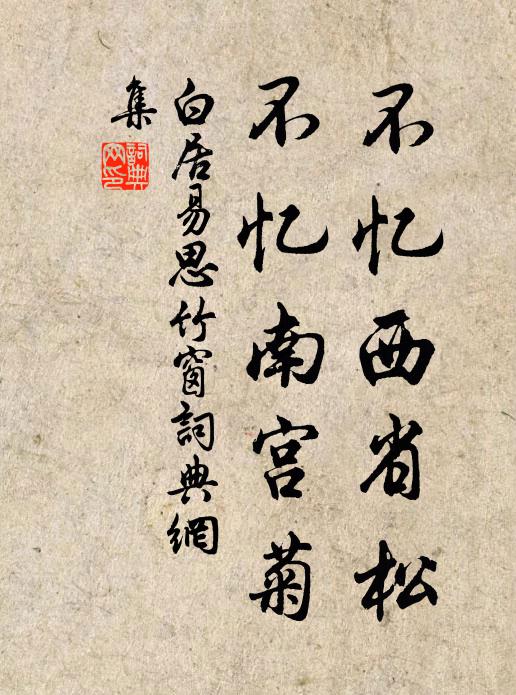 不忆西省松
不忆南宫菊
白居易思竹窗詞典網
集
詞典网印